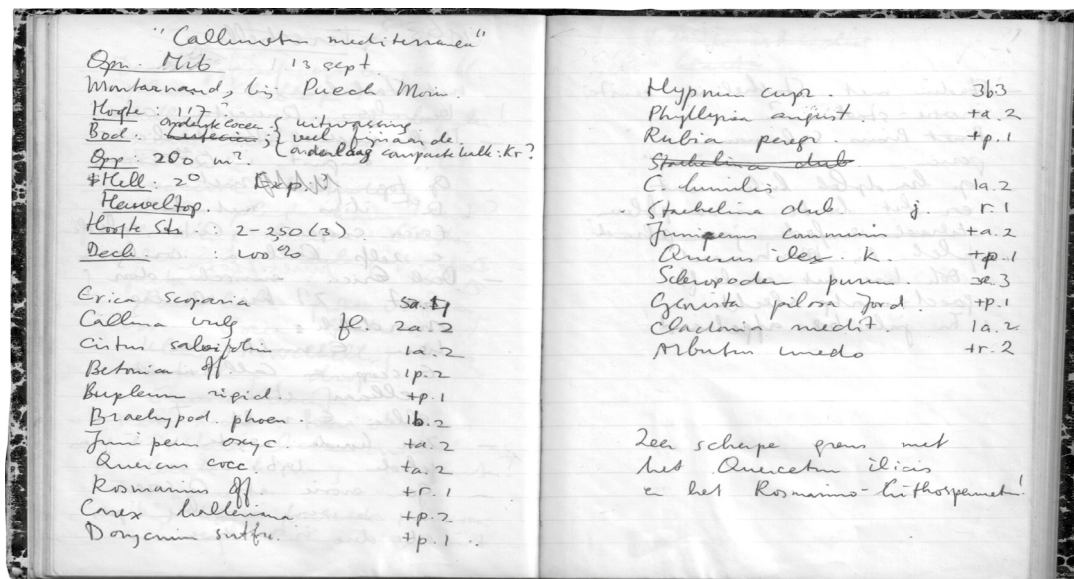 "Callunetum mediterranea"
Opn. Mrb 13 sept.
Montarnaud, bij Puech Mou.
Hoogte: 117
Bod: { uitwassing
veel fijnaarde.
onderlaag compacte kalk: Kr?
Opp: 200 m².
Hell: 2° Exp.
Heuveltop.
Hoogte Str.: 2-2,50 (3).
Deck: 100%
Erica scoparia
Calluna vulg fl. 2a.2
Cistus salviifolius 1a.2
Betonica off 1p.2
Bupleurum rigid. +p.1
Brachypod. phoen. 1b.2
Juniperus oxyc. +a.2
Quercus cocc. +a.2
Rosmarinus off +r.1
Carex halleriana +p.2
Dorycnium suffr. +p.1
Hypnum cupr. 3b3
Phyllyrea angust. +a.2
Rubia peregr. +p.1
Staehelina dub
C. humilis 1a.2
Staehelina dub j. r.1
Juniperus communis +a.2
Quercus ilex. k. +p.1
Scleropodium purum. .3
Genista pilosa Jord. +p.1
Cladonia medit 1a.2
Arbutus unedo +r.2
Zeer scherpe grens met
het Quercetum ilicis
en het Rosmarino-Lithospermetum!